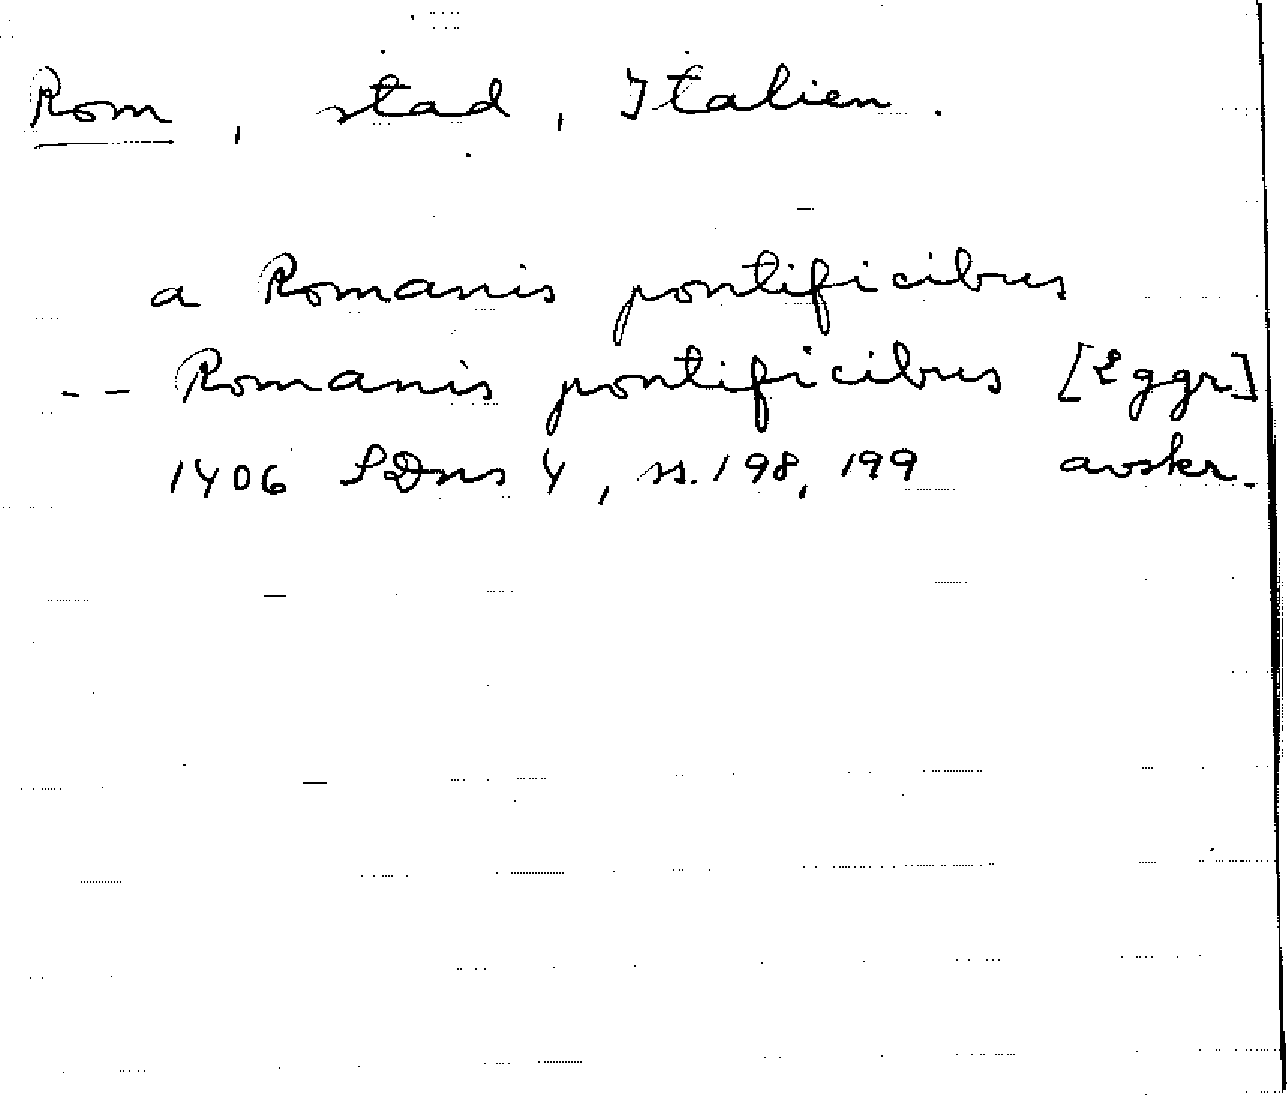 Rom, stad, Italien.
a Romanis pontificibus
-- Romanis pontificibus [2ggr]
1406 SDns 4, ss. 198, 199 avskr.